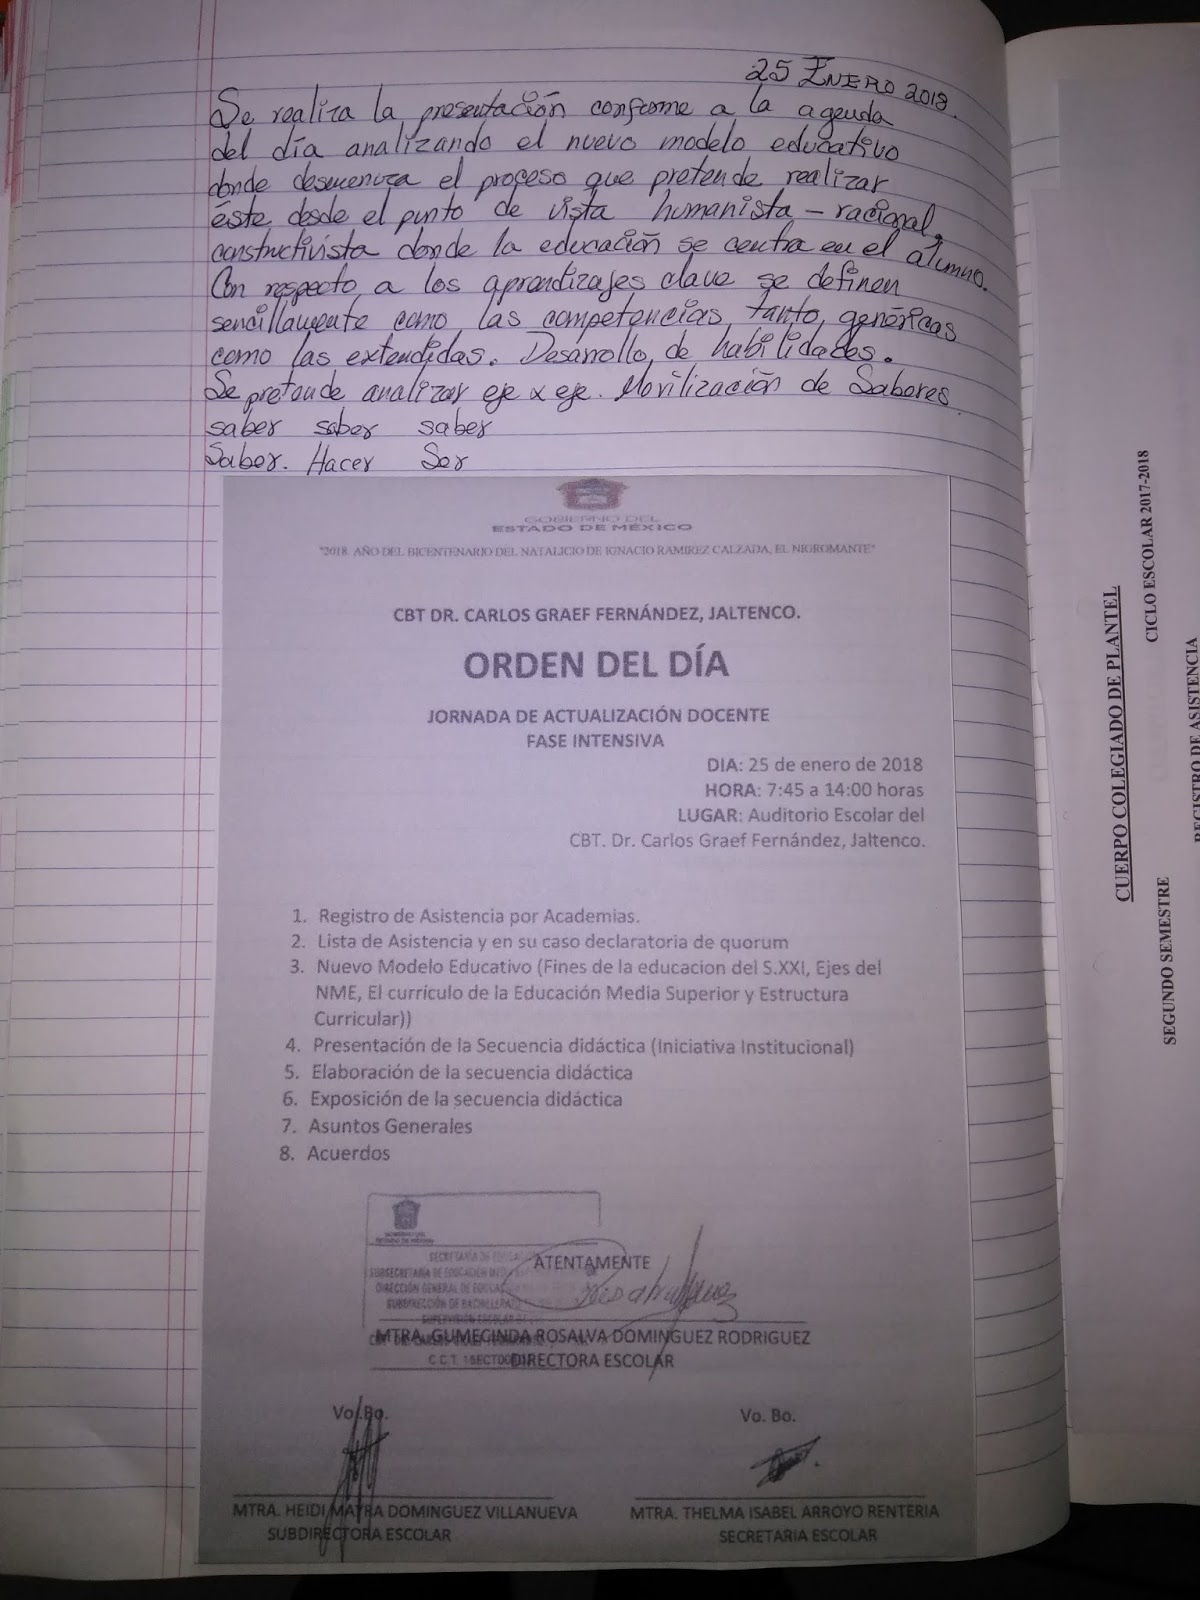 25 ENERO 2018.
Se realiza la presentación conforme a la agenda
del día analizando el nuevo modelo educativo
donde desmenuza el proceso que pretende realizar
éste desde el punto de vista humanista - racional,
constructivista donde la educación se centra en el alumno.
Con respecto a los aprendizajes clave se definen
sencillamente como las competencias, tanto, genéricas
como las extendidas. Desarrollo de habilidades.
Se pretende analizar eje x eje. Movilización de Saberes.
saber saber saber
Saber. Hacer Ser
GOBIERNO DEL
ESTADO DE MÉXICO
"2018. AÑO DEL BICENTENARIO DEL NATALICIO DE IGNACIO RAMIREZ CALZADA, EL NIGROMANTE"
CBT DR. CARLOS GRAEF FERNÁNDEZ, JALTENCO.
ORDEN DEL DÍA
JORNADA DE ACTUALIZACIÓN DOCENTE
FASE INTENSIVA
DIA: 25 de enero de 2018
HORA: 7:45 a 14:00 horas
LUGAR: Auditorio Escolar del
CBT. Dr. Carlos Graef Fernández, Jaltenco.
1. Registro de Asistencia por Academias.
2. Lista de Asistencia y en su caso declaratoria de quorum
3. Nuevo Modelo Educativo (Fines de la educacion del S.XXI, Ejes del
NME, El currículo de la Educación Media Superior y Estructura
Curricular))
4. Presentación de la Secuencia didáctica (Iniciativa Institucional)
5. Elaboración de la secuencia didáctica
6. Exposición de la secuencia didáctica
7. Asuntos Generales
8. Acuerdos
SECRETARÍA DE
SUBSECRETARÍA DE EDUCACIÓN
DIRECCIÓN GENERAL DE
SUBDIRECCIÓN DE BACHILLERATO
SUPERVISIÓN ESCOLAR
C.C.T.
ATENTAMENTE
MTRA. GUMECINDA ROSALVA DOMINGUEZ RODRIGUEZ
DIRECTORA ESCOLAR
Vo. Bo.
MTRA. HEIDI MAYRA DOMINGUEZ VILLANUEVA
SUBDIRECTORA ESCOLAR
Vo. Bo.
MTRA. THELMA ISABEL ARROYO RENTERIA
SECRETARIA ESCOLAR
CUERPO COLEGIADO DE PLANTEL
SEGUNDO SEMESTRE CICLO ESCOLAR 2017-2018
REGISTRO DE ASISTENCIA